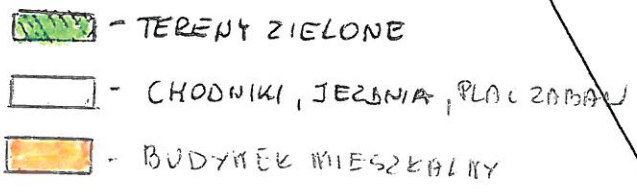 - TERENY ZIELONE
- CHODNIKI, JEZDNIA, PLAC ZABAW
- BUDYNEK MIESZKALNY